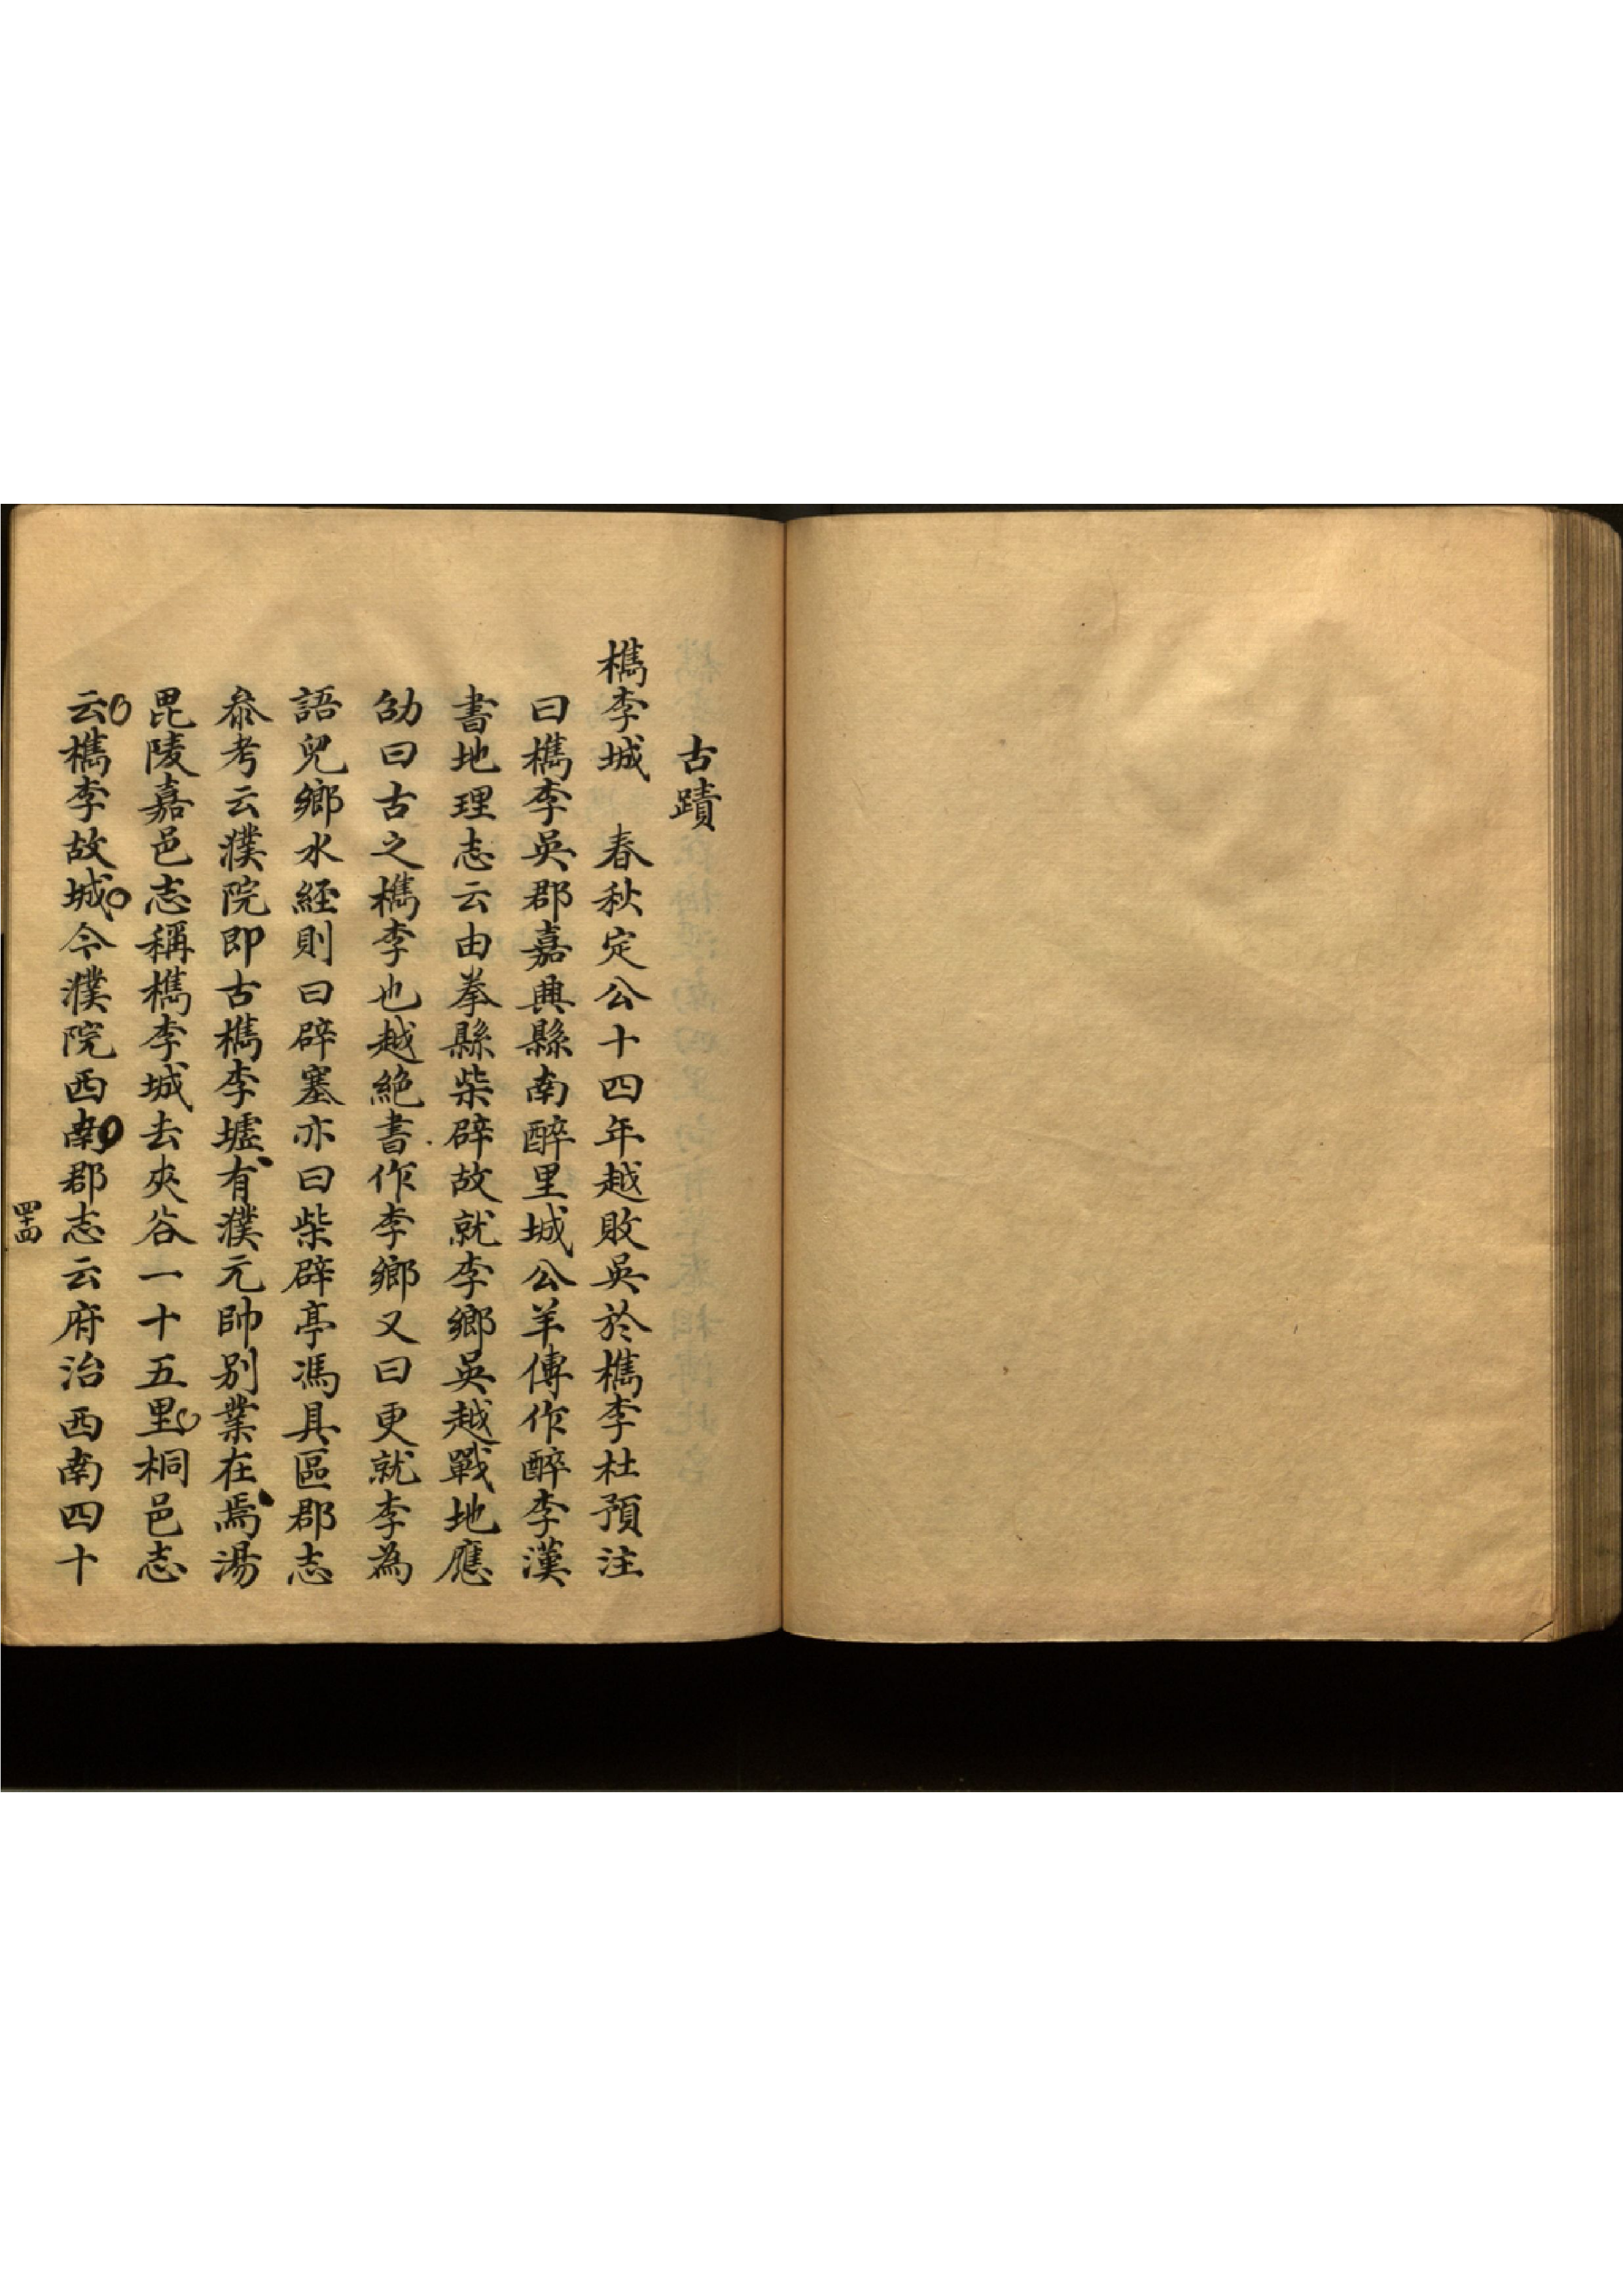 古蹟
檇李城　春秋定公十四年越敗吳於檇李杜預注
曰檇李吳郡嘉興縣南醉里城公羊傳作醉李漢
書地理志云由拳縣柴辟故就李鄉吳越戰地應
劭曰古之檇李也越絕書作李鄉又曰更就李為
語兒鄉水經則曰辟塞亦曰柴辟亭馮具區郡志
叅考云濮院即古檇李墟有濮元帥別業在焉湯
毘陵嘉邑志稱檇李城去夾谷一十五里桐邑志
云檇李故城今濮院西南郡志云府治西南四十
四十四